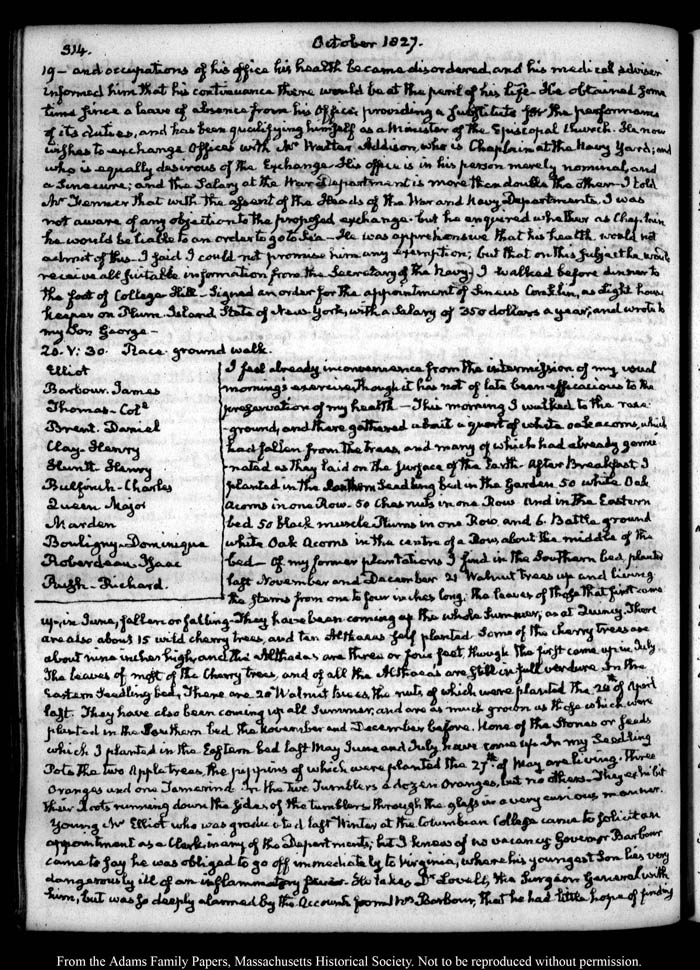 314.
October 1827.
19 — and occupations of his office his health became disordered, and his medical adviser
informed him that his continuance there would be at the peril of his life. He obtained some
time since a leave of absence from his Office, providing a substitute for the performance
of its duties, and has been qualifying himself as a Minister of the Episcopal Church. He now
wishes to exchange Offices with Mr Walter Addison, who is Chaplain at the Navy Yard; and
who is equally desirous of the Exchange. His office is in his person merely nominal, and
a Sinecure; and the Salary at the War Department is more than double the other. I told
Mr that with the assent of the Heads of the War and Navy Departments, I was
not aware of any objection to the proposed exchange. but he enquired whether as Chaplain
he would be liable to an order to go to Sea — He was apprehensive that his health would not
admit of this. I said I could not promise him any exemption; but that on this subject he would
receive all suitable information from the Secretary of the Navy. I walked before dinner to
the foot of College Hill — Signed an order for the appointment of as Light house
keeper on Plum Island State of New-York, with a Salary of 350 dollars a year; and wrote to
my Son George —
20. V: 30. Race ground walk.
Elliot
Barbour. James
Thomas — Col.e
Brent. Daniel
Clay. Henry
Huntt Henry
Bulfinch — Charles
Queen Major
Marden
Bouligny — Dominique
Roberdeau. Isaac
Rush — Richard.
I feel already inconvenience from the intermission of my usual
morning's exercise, though it has not of late been efficacious to the
preservation of my health — This morning I walked to the race
-ground, and there gathered about a quart of white oak acorns, which
had fallen from the trees, and many of which had already germi
-nated as they laid on the surface of the Earth. After Breakfast I
planted in the Southern Seedling bed in the Garden 50 white Oak
Acorns in one Row. 50 Chesnuts in one Row And in the Eastern
bed 50 black muscle Plums in one Row, and 6. Battle ground
white Oak Acorns in the centre of a Row, about the middle of the
bed — Of my former plantations I find in the Southern bed, planted
last November and December 21 Walnut trees up and living
the stems from one to four inches long; the leaves of those that first came
up, in June, fallen or falling. They have been coming up the whole Summer, as at Quincy. There
are also about 15 wild cherry trees, and ten Althaeas self planted. Some of the cherry trees are
about nine inches high, and the Althaeas are three or four feet though the first came up in July.
The leaves of most of the Cherry trees, and of all the Althaeas are still in full verdure. In the
Eastern Seedling bed, There are 20 Walnut trees the nuts of which were planted the 26th of April
last. They have also been coming up all Summer, and are as much grown as those which were
planted in the Southern bed the November and December before. None of the Stones or seeds
which I planted in the Eastern bed last May June and July have come up. In my Seedling
Pots the two Apple trees, the pippins of which were planted the 27th of May are living. Three
Oranges and one Tamarind. In the two Tumblers a dozen Oranges, but no others. They exhibit
their Roots running down the sides of the tumblers through the glass in a very curious manner.
Young Mr Elliot who was graduated last Winter at the Columbian College came to solicit an
appointment as a Clerk in any of the Departments; but I knew of no vacancy. Governor Barbour
came to say he was obliged to go off immediately to Virginia, where his youngest Son lies very
dangerously ill of an inflammatory fever. He takes Dr Lovell, the Surgeon General with
him, but was so deeply alarmed by the Accounts from Mrs Barbour, that he had little hope of finding
From the Adams Family Papers, Massachusetts Historical Society. Not to be reproduced without permission.